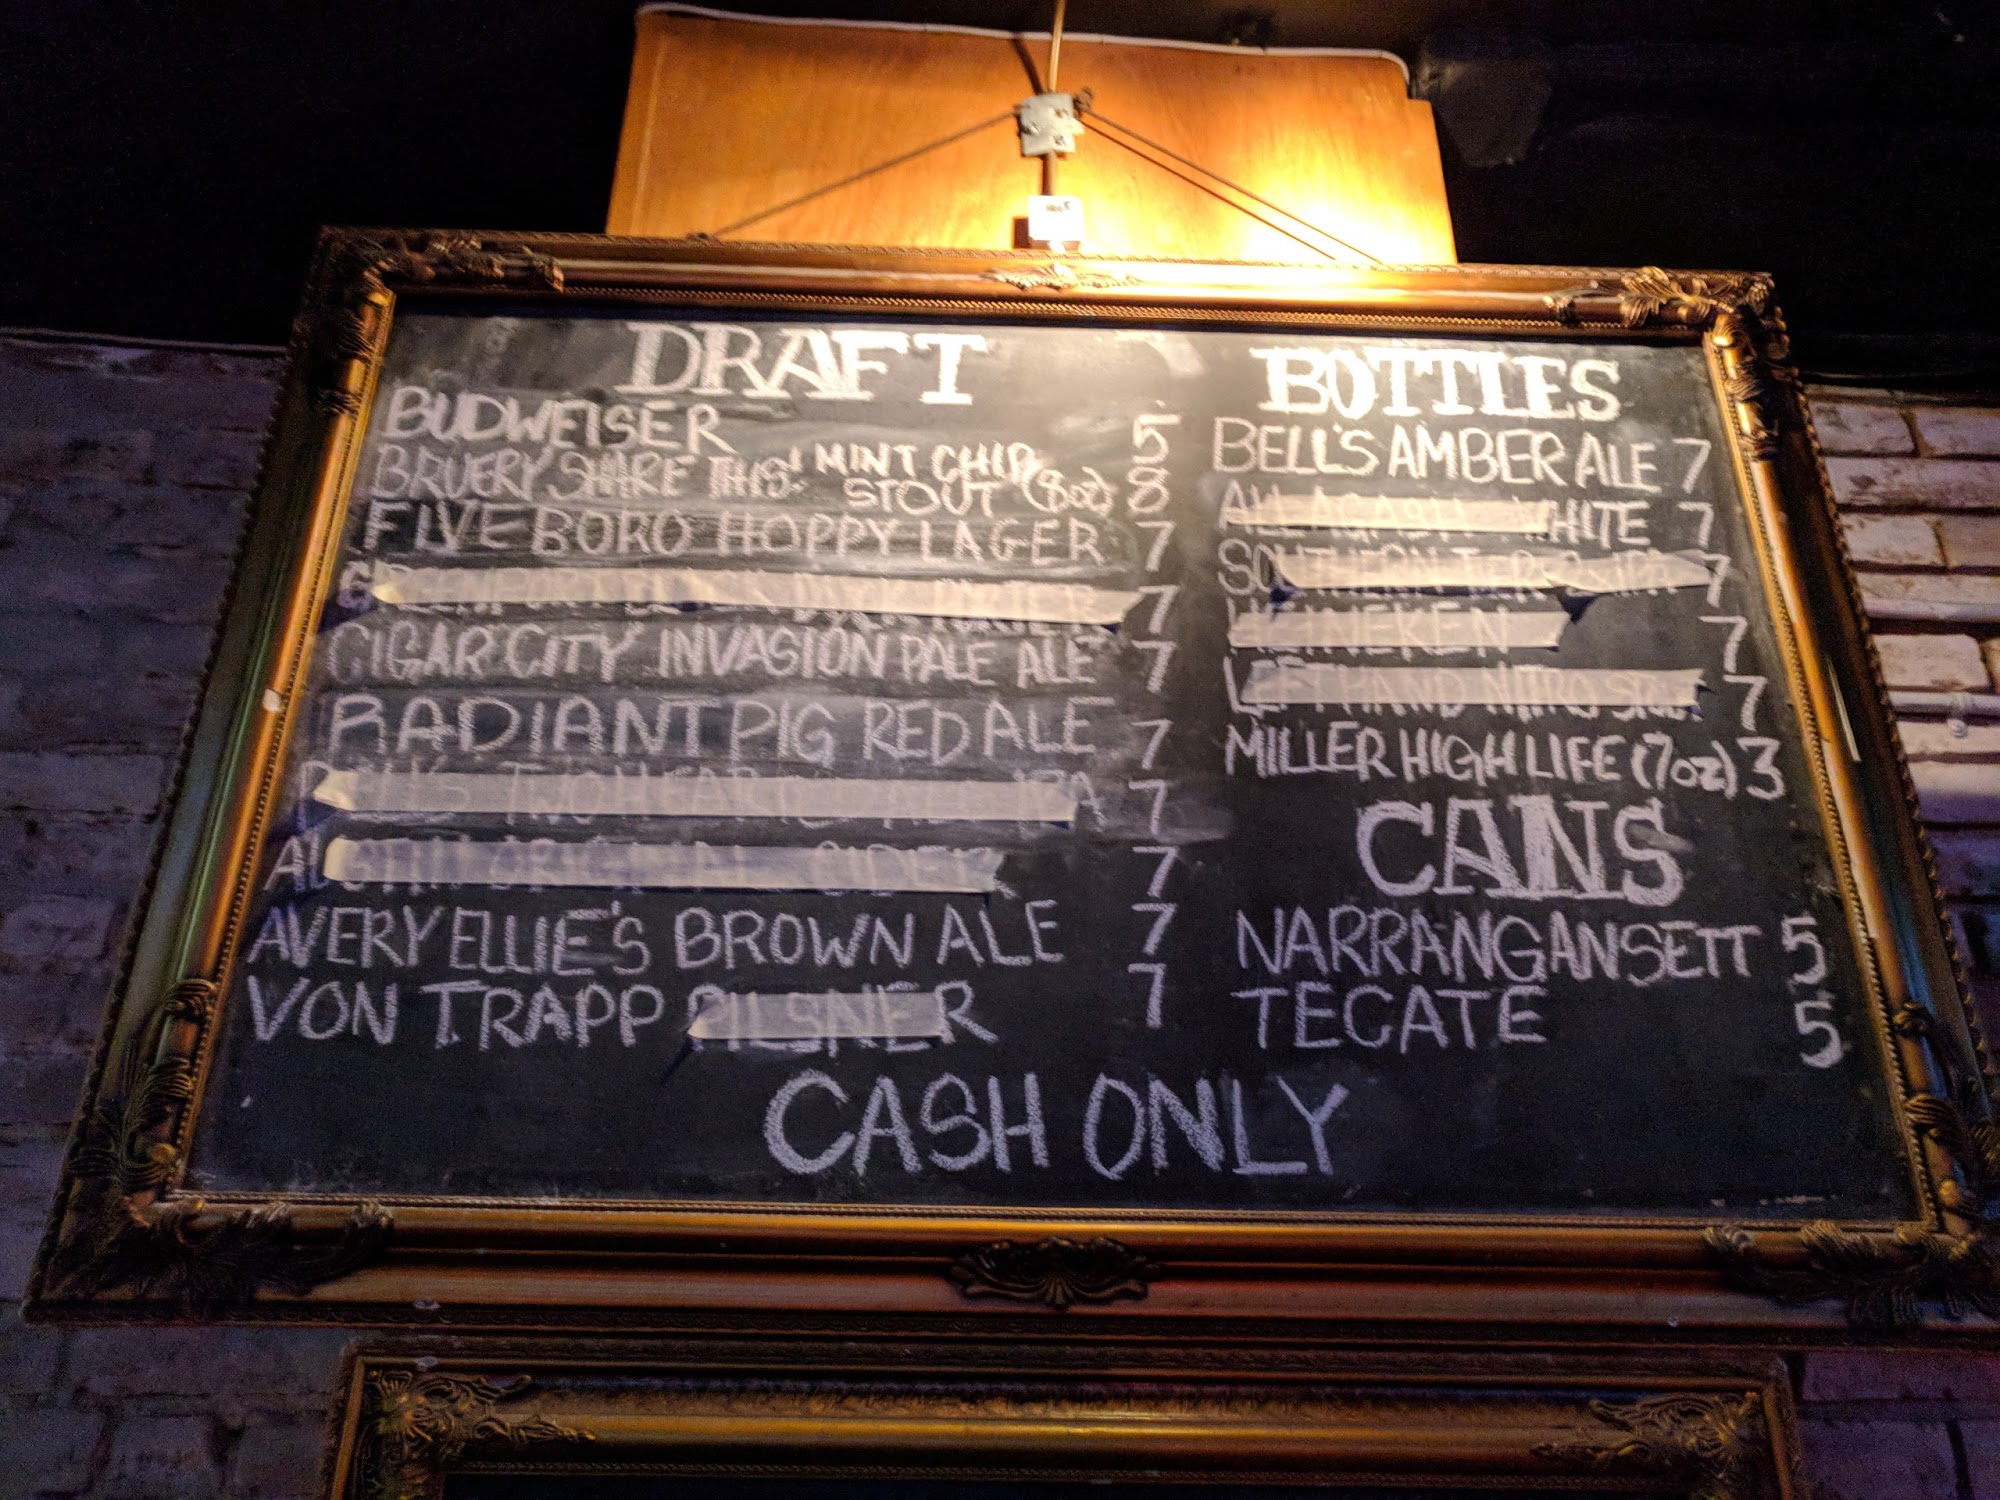 DRAFT
BUDWEISER 5
BRUERY SHARE THIS! MINT CHIP STOUT (8oz) 8
FIVE BORO HOPPY LAGER 7
7
CIGAR CITY INVASION PALE ALE 7
RADIANT PIG RED ALE 7
TWO HEARTED IPA 7
ORIGINAL CIDER 7
AVERY ELLIE'S BROWN ALE 7
VON TRAPP PILSNER 7
BOTTLES
BELL'S AMBER ALE 7
WHITE 7
SOUTHERN TIER 7
HEINEKEN 7
LEFT HAND NITRO 7
MILLER HIGH LIFE (7oz) 3
CANS
NARRANGANSETT 5
TECATE 5
CASH ONLY